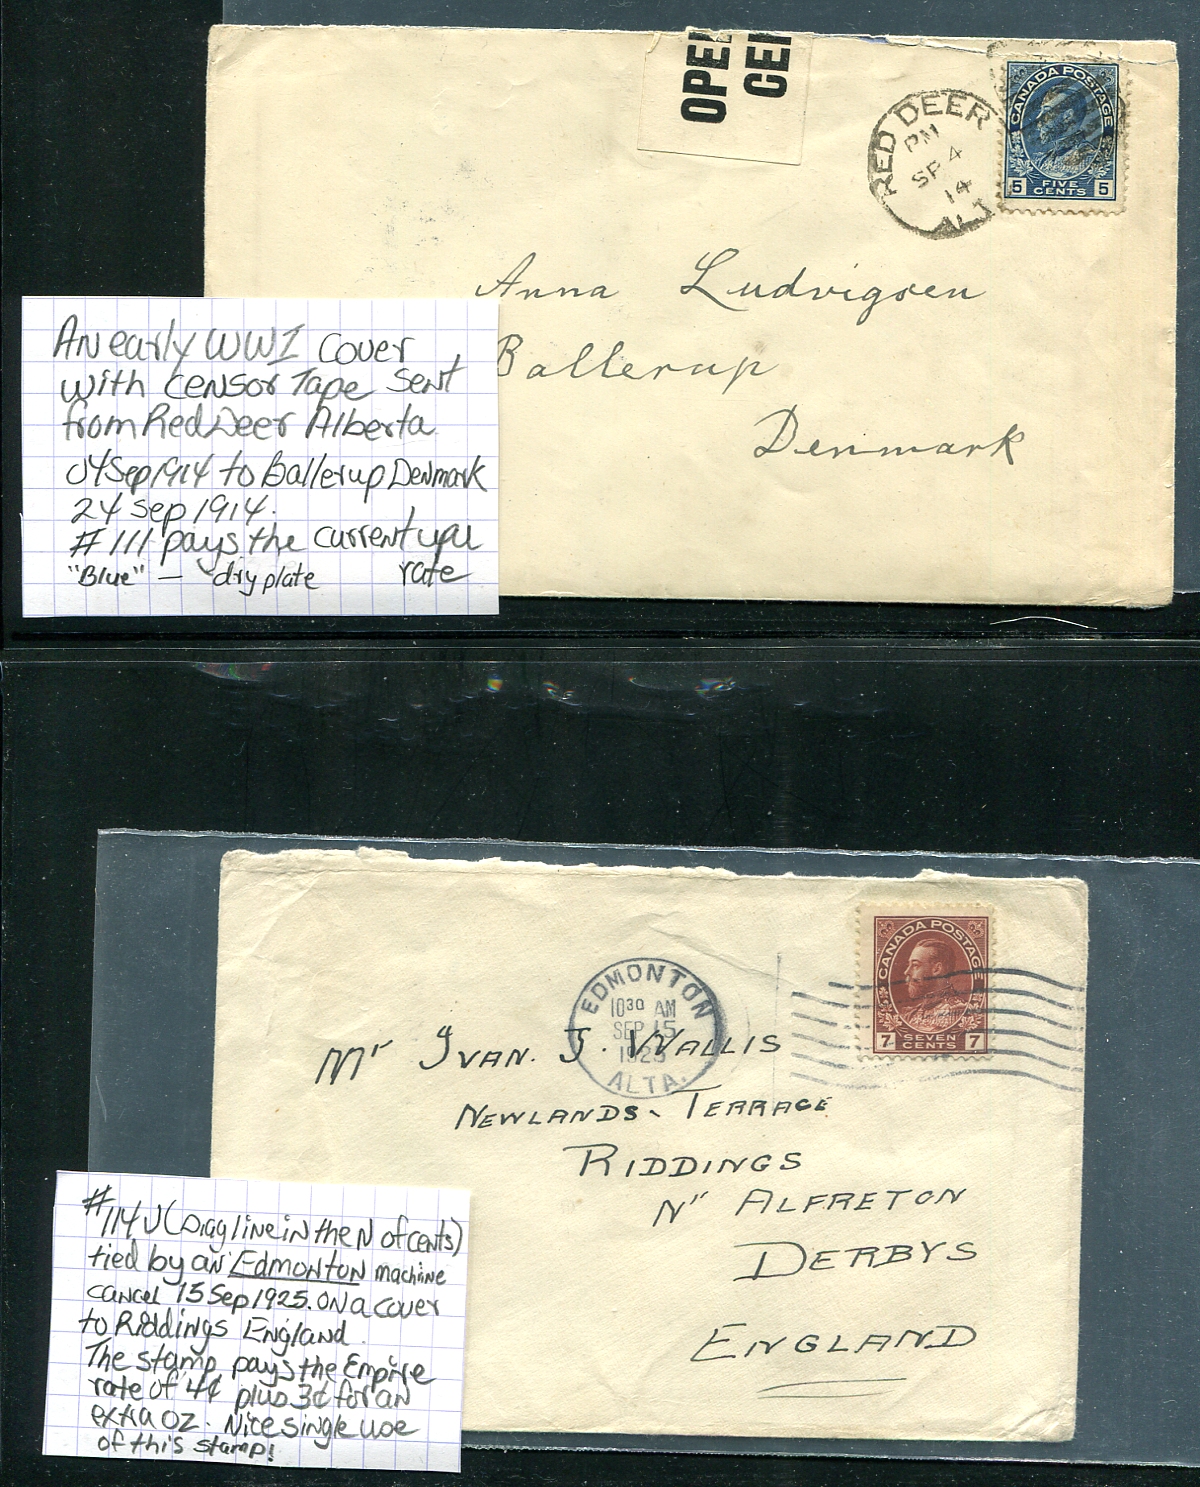 OPE
CE
RED DEER
PM
SP 4
14
CANADA POSTAGE
5 FIVE CENTS 5
Anna Ludvigsen
Ballerup
Denmark
An early WWI cover
with censor Tape sent
from Red Deer Alberta
04 Sep 1914 to Ballerup Denmark
24 Sep 1914.
#111 pays the current upu
"Blue" — dry plate rate
CANADA POSTAGE
7 SEVEN CENTS 7
EDMONTON
10 30 AM
SEP 15
1925
ALTA.
Mr Ivan. J. Wallis
Newlands Terrace
Riddings
Nr Alfreton
Derbys
England
#114 v (Diag line in the N of cents)
tied by an Edmonton machine
cancel 15 Sep 1925. on a cover
to Riddings England.
The stamp pays the Empire
rate of 4¢ plus 3¢ for an
extra oz. Nice single use
of this stamp!